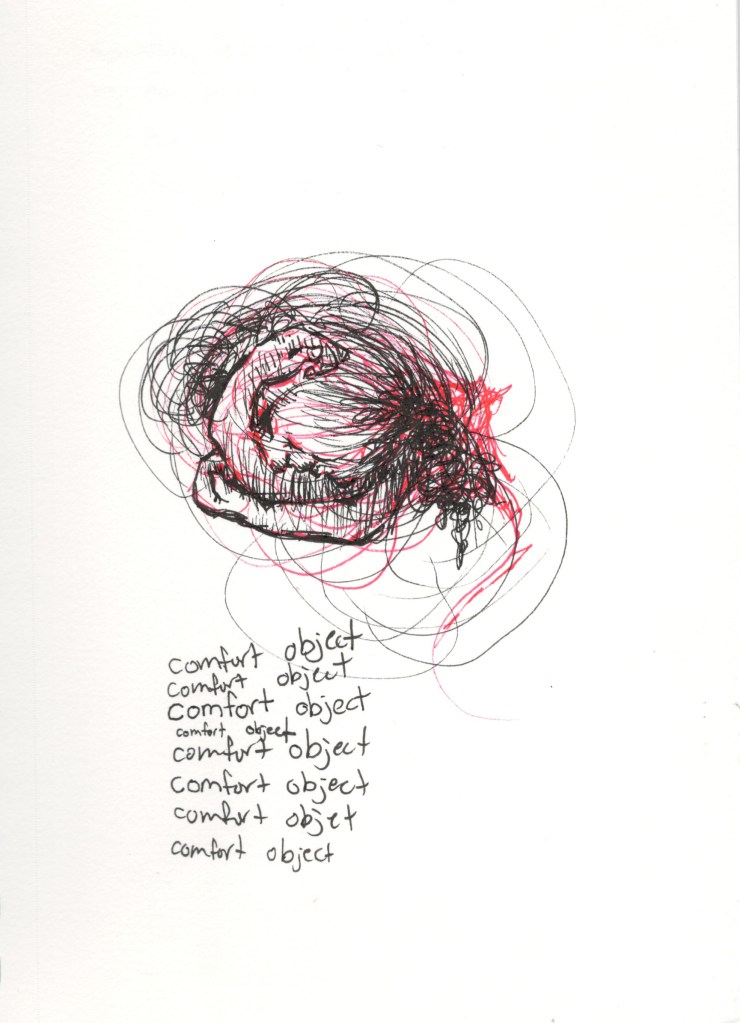 comfort object
comfort object
comfort object
comfort object
comfort object
comfort object
comfort objet
comfort object